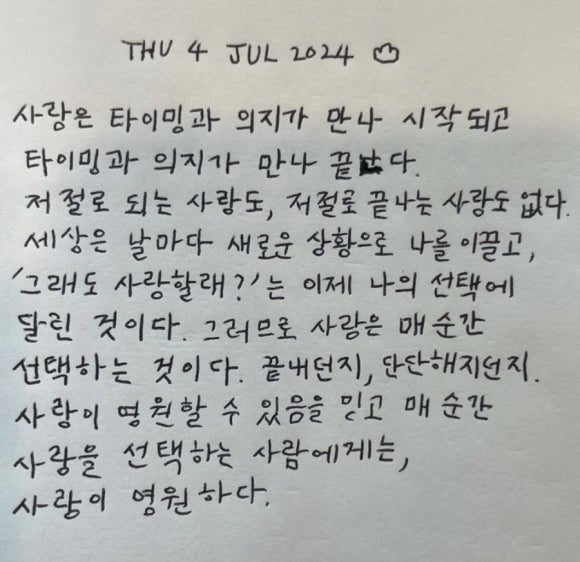 THU 4 JUL 2024
사랑은 타이밍과 의지가 만나 시작되고
타이밍과 의지가 만나 끝난다.
저절로 되는 사랑도, 저절로 끝나는 사랑도 없다.
세상은 날마다 새로운 상황으로 나를 이끌고,
'그래도 사랑할래?'는 이제 나의 선택에
달린 것이다. 그러므로 사랑은 매 순간
선택하는 것이다. 끝내던지, 단단해지던지.
사랑이 영원할 수 있음을 믿고 매 순간
사랑을 선택하는 사람에게는,
사랑이 영원하다.